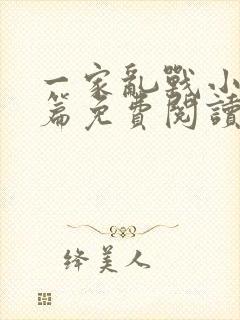 一家亂戰小
篇免費閱讀
绛美人